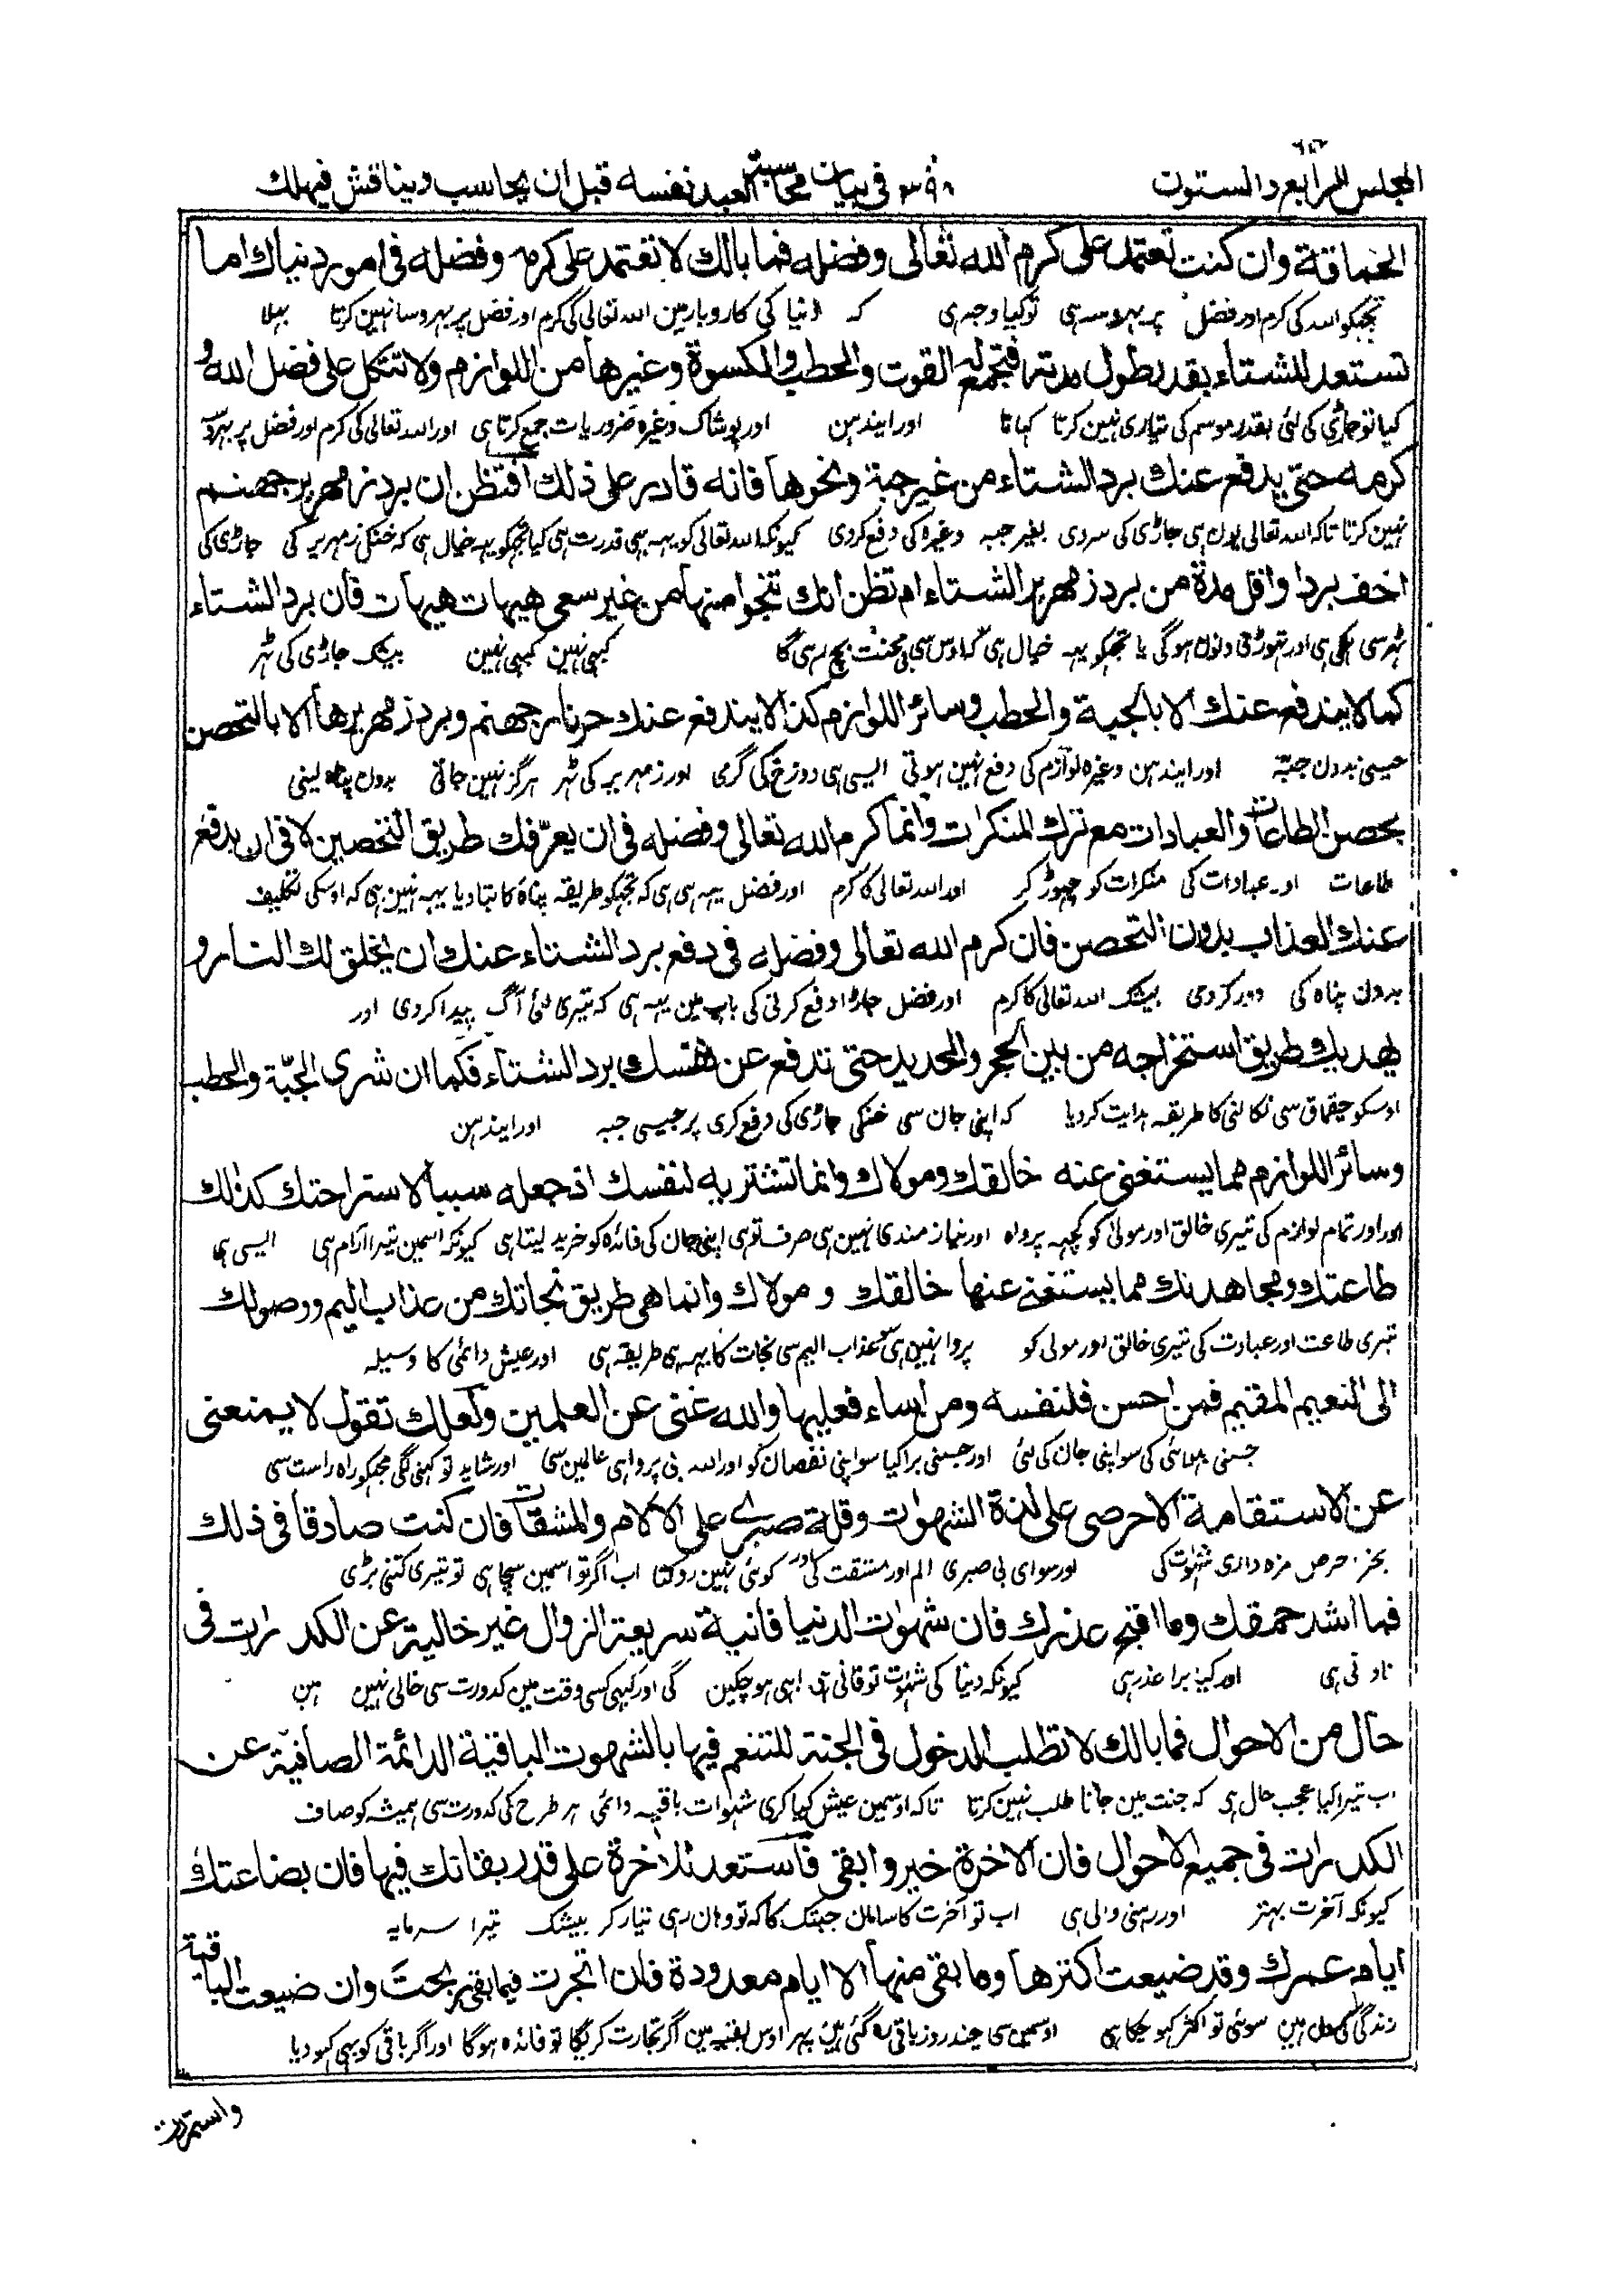 المجلس الرابع والستون ٣٩٨ في بيان محاسبة العبد نفسه قبل ان يحاسب ويناقش فيهلك
الحماقة وان كنت تعتمد على كرم الله تعالى وفضله فما بالك لا تعتمد على كرمه وفضله في امور دنياك اما
تجهكو الله كى كرم اور فضل پر بهروسه هى تو كيا وجه هى كه دنيا كى كاروبار مين الله تعالى كى كرم اور فضل پر بهروسا نهين كرتا بهلا
تستعد للشتاء بقدر طول مدته فتجمع له القوت والحطب والكسوة وغيرها من اللوازم ولا تتكل على فضل الله و
كيا تو جاڑى كى لئى بقدر موسم كى تيارى نهين كرتا كهانا اور ايندهن اور پوشاك وغيره ضروريات جمع كرتا هى اور الله تعالى كى كرم اور فضل پر بهروسا
كرمه حتى يدفع عنك برد الشتاء من غير جبة ونحوها فانه قادر على ذلك افتظن ان برد زمهرير جهنم
نهين كرتا تاكه الله تعالى يون هى جاڑى كى سردى بغير جبه وغيره كى دفع كردى كيونكه الله تعالى كو يهه بهى قدرت هى كيا تجهكو يهه خيال هى كه خنكى زمهرير كى جاڑى كى
اخف بردا واقل مدة من برد زمهرير الشتاء ام تظن انك تنجو منها من غير سعي هيهات هيهات فان برد الشتاء
ٹهر سى هلكى هى اور تهوڑى دنون هوگى يا تجهكو يهه خيال هى كه اوس سى بى محنت بچ رهى گا كبهى نهين كبهى نهين بيشك جاڑى كى ٹهر
كما لا يندفع عنك الا بالجبة والحطب وسائر اللوازم كذا لا يندفع عنك حر نار جهنم وبرد زمهريرها الا بالتحصن
جيسى بدون جبّه اور ايندهن وغيره لوازم كى دفع نهين هوتى ايسى هى دوزخ كى گرمى اور زمهرير كى ٹهر هرگز نهين جاتى بدون پناه لينى
بحصن الطاعات والعبادات مع ترك المنكرات وانما كرم الله تعالى وفضله في ان يعرّفك طريق التحصين لا في ان يدفع
طاعات اور عبادات كى منكرات كو چهوڑ كر اور الله تعالى كا كرم اور فضل يهه هى هى كه تجهكو طريقه پناه كا بتا ديا يهه نهين هى كه اوسكى تكليف
عنك العذاب بدون التحصن فان كرم الله تعالى وفضله في دفع برد الشتاء عنك ان يخلق لك النار و
بدون پناه كى دور كردى بيشك الله تعالى كا كرم اور فضل جاڑا دفع كرنى كى باب مين يهه هى كه تيرى لئى آگ پيدا كردى اور
يهديك طريق استخراجه من بين الحجر والحديد حتى تدفع عن نفسك برد الشتاء فكما ان شرى الجبّة والحطب
اوسكو چقماق سى نكالنى كا طريقه هدايت كرديا كه اپنى جان سى خنكى جاڑى كى دفع كرى پر جيسى جبه اور ايندهن
وسائر اللوازم مما يستغنى عنه خالقك ومولاك وانما تشتريه لنفسك اذ جعله سببا لاستراحتك كذلك
اور اور تمام لوازم كى تيرى خالق اور مولى كو كچهه پرواه اور نياز مندى نهين هى صرف تو هى اپنى جان كى فائده كو خريد ليتا هى كيونكه اسمين تيرا آرام هى ايسى هى
طاعتك ومجاهدتك مما يستغنى عنها خالقك و مولاك وانما هي طريق نجاتك من عذاب اليم ووصولك
تيرى طاعت اور عبادت كى تيرى خالق اور مولى كو پروا نهين هى سو عذاب اليم سى نجات كا يهه هى طريقه هى اور عيش دائمى كا وسيله
الى النعيم المقيم فمن احسن فلنفسه ومن اساء فعليها والله غني عن العلمين ولعلك تقول لا يمنعنى
جسنى بهلائى كى سو اپنى جان كى لئى اور جسنى برا كيا سو اپنى نقصان كو اور الله بى پروا هى عالمين سى اور شايد تو كهنى لگى مجهكو راه راست سى
عن الاستقامة الا حرصى على لذة الشهوات وقلة صبرى على الالام والمشقات فان كنت صادقا في ذلك
بجز حرص مزه دارى شهوات كى اور سواى بى صبرى الم اور مشقت كى اور كوئى نهين روكتا اب اگر تو اسمين سچا هى تو تيرى كتنى بڑى
فما اشد حمقك وما اقبح عذرك فان شهوات الدنيا فانية سريعة الزوال غير خالية عن الكدرات في
نادانى هى اور كيا برا عذر هى كيونكه دنيا كى شهوات تو فانى هى ابهى هوچكين گى اور كبهى كسى وقت مين كدورت سى خالى نهين هين
حال من الاحوال فما بالك لا تطلب الدخول في الجنة للتنعم فيها بالشهوت الباقية الدائمة الصافية عن
اب تيرا كيا عجب حال هى كه جنت مين جانا طلب نهين كرتا تاكه اوسمين عيش كيا كرى شهوات باقيه دائمى هر طرح كى كدورت سى هميشه كو صاف
الكدرات في جميع الاحوال فان الاخرة خير وابقى فاستعد للاخرة على قدر بقائك فيها فان بضاعتك
كيونكه آخرت بهتر اور رهنى والى هى اب تو آخرت كا سامان جبتك كا كه تو وهان رهى تيار كر بيشك تيرا سرمايه
ايام عمرك وقد ضيعت اكثرها وما بقي منها الا ايام معدودة فان اتجرت فيما بقي ربحت وان ضيعت الباقية
زندگى كى دن هين سوئى تو اكثر كهو چكا هى اوسمين سى چند روز باقى ره گئى هين پهر اوس بقيه مين اگر تجارت كريگا تو فائده هوگا اور اگر باقى كو بهى كهو ديا
واستمررت